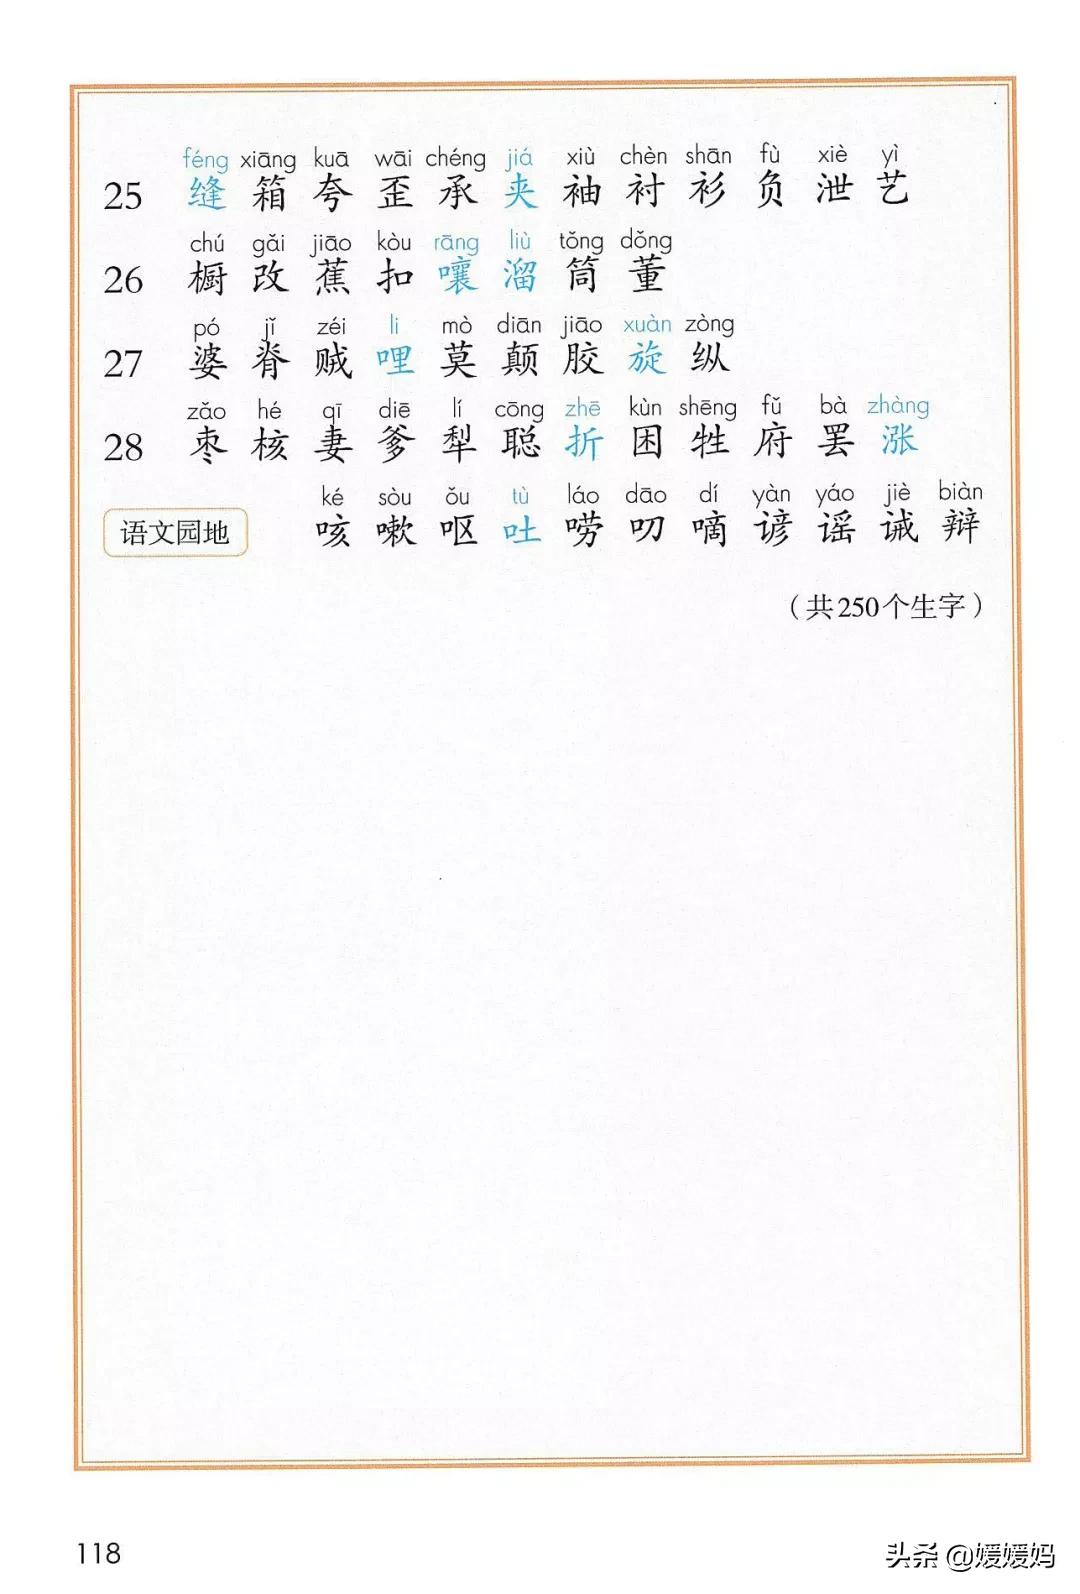 féng xiāng kuā wāi chéng jiá xiù chèn shān fù xiè yì
25 缝 箱 夸 歪 承 夹 袖 衬 衫 负 泄 艺
chú gǎi jiāo kòu rāng liù tǒng dǒng
26 橱 改 蕉 扣 嚷 溜 筒 董
pó jǐ zéi li mò diān jiāo xuàn zòng
27 婆 脊 贼 哩 莫 颠 胶 旋 纵
zǎo hé qī diē lí cōng zhē kùn shēng fǔ bà zhàng
28 枣 核 妻 爹 犁 聪 折 困 牲 府 罢 涨
ké sòu ǒu tù láo dāo dí yàn yáo jiè biàn
语文园地 咳 嗽 呕 吐 唠 叨 嘀 谚 谣 诫 辩
（共250个生字）
118
头条 @媛媛妈